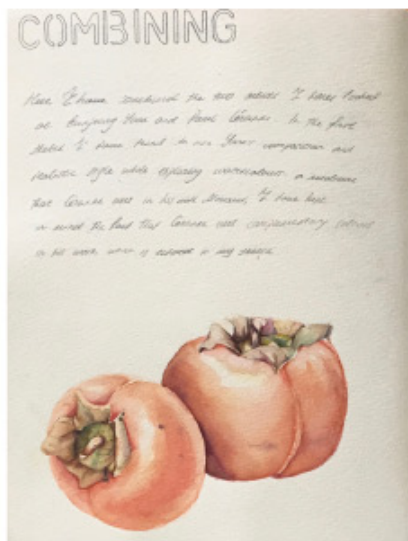 COMBINING
Here I have combined the two artists I have looked
at and Paul Cézanne. In the first
sketch I have tried to use composition and
realistic style while exploring watercolour, a medium
that Cézanne used in his I have kept
in mind the fact that Cézanne used complementary colours
in his work which is evident in my